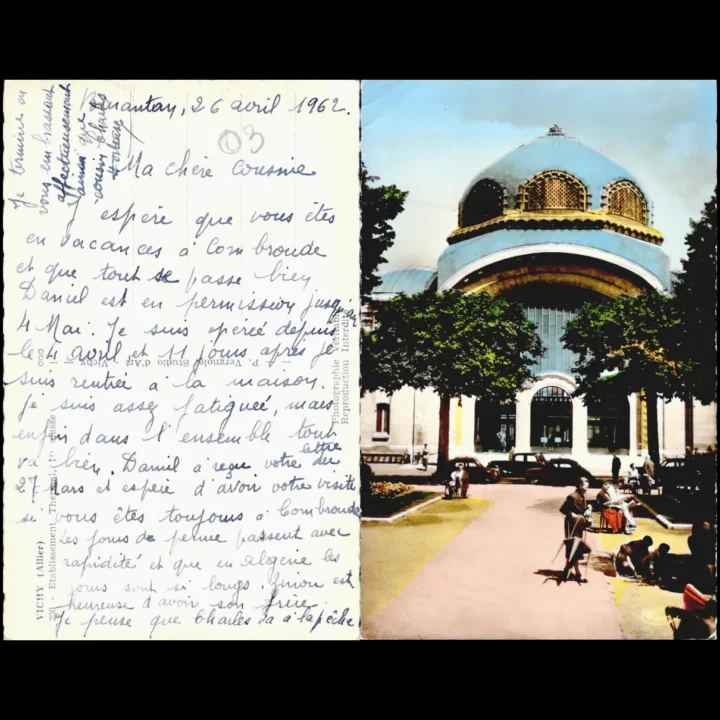 26 avril 1962.
03
Ma chère cousine
espère que vous êtes
en vacances à Combronde
et que tout se passe bien
Daniel est en permission jusqu'au
4 Mai. Je suis opérée depuis
le 4 avril et 11 jours après je
suis rentrée à la maison.
je suis assez fatiguée, mais
enfin dans l'ensemble tout
va bien. Daniel à reçu votre lettre du
27 Mars et espère d'avoir votre visite
si vous êtes toujours à Combronde
Les jours de perme passent avec
rapidité et que en Algérie les
jours sont si longs. est
heureuse d'avoir son frère
Je pense que Charles va à la pêche
Je termine en
vous embrassant
affectueusement
ainsi que
cousin Charles
VICHY (Allier)
Etablissement Thermal, 1re classe
P. Vergnol, Studio d'Art, Vichy
Photographie Véritable
Reproduction Interdite